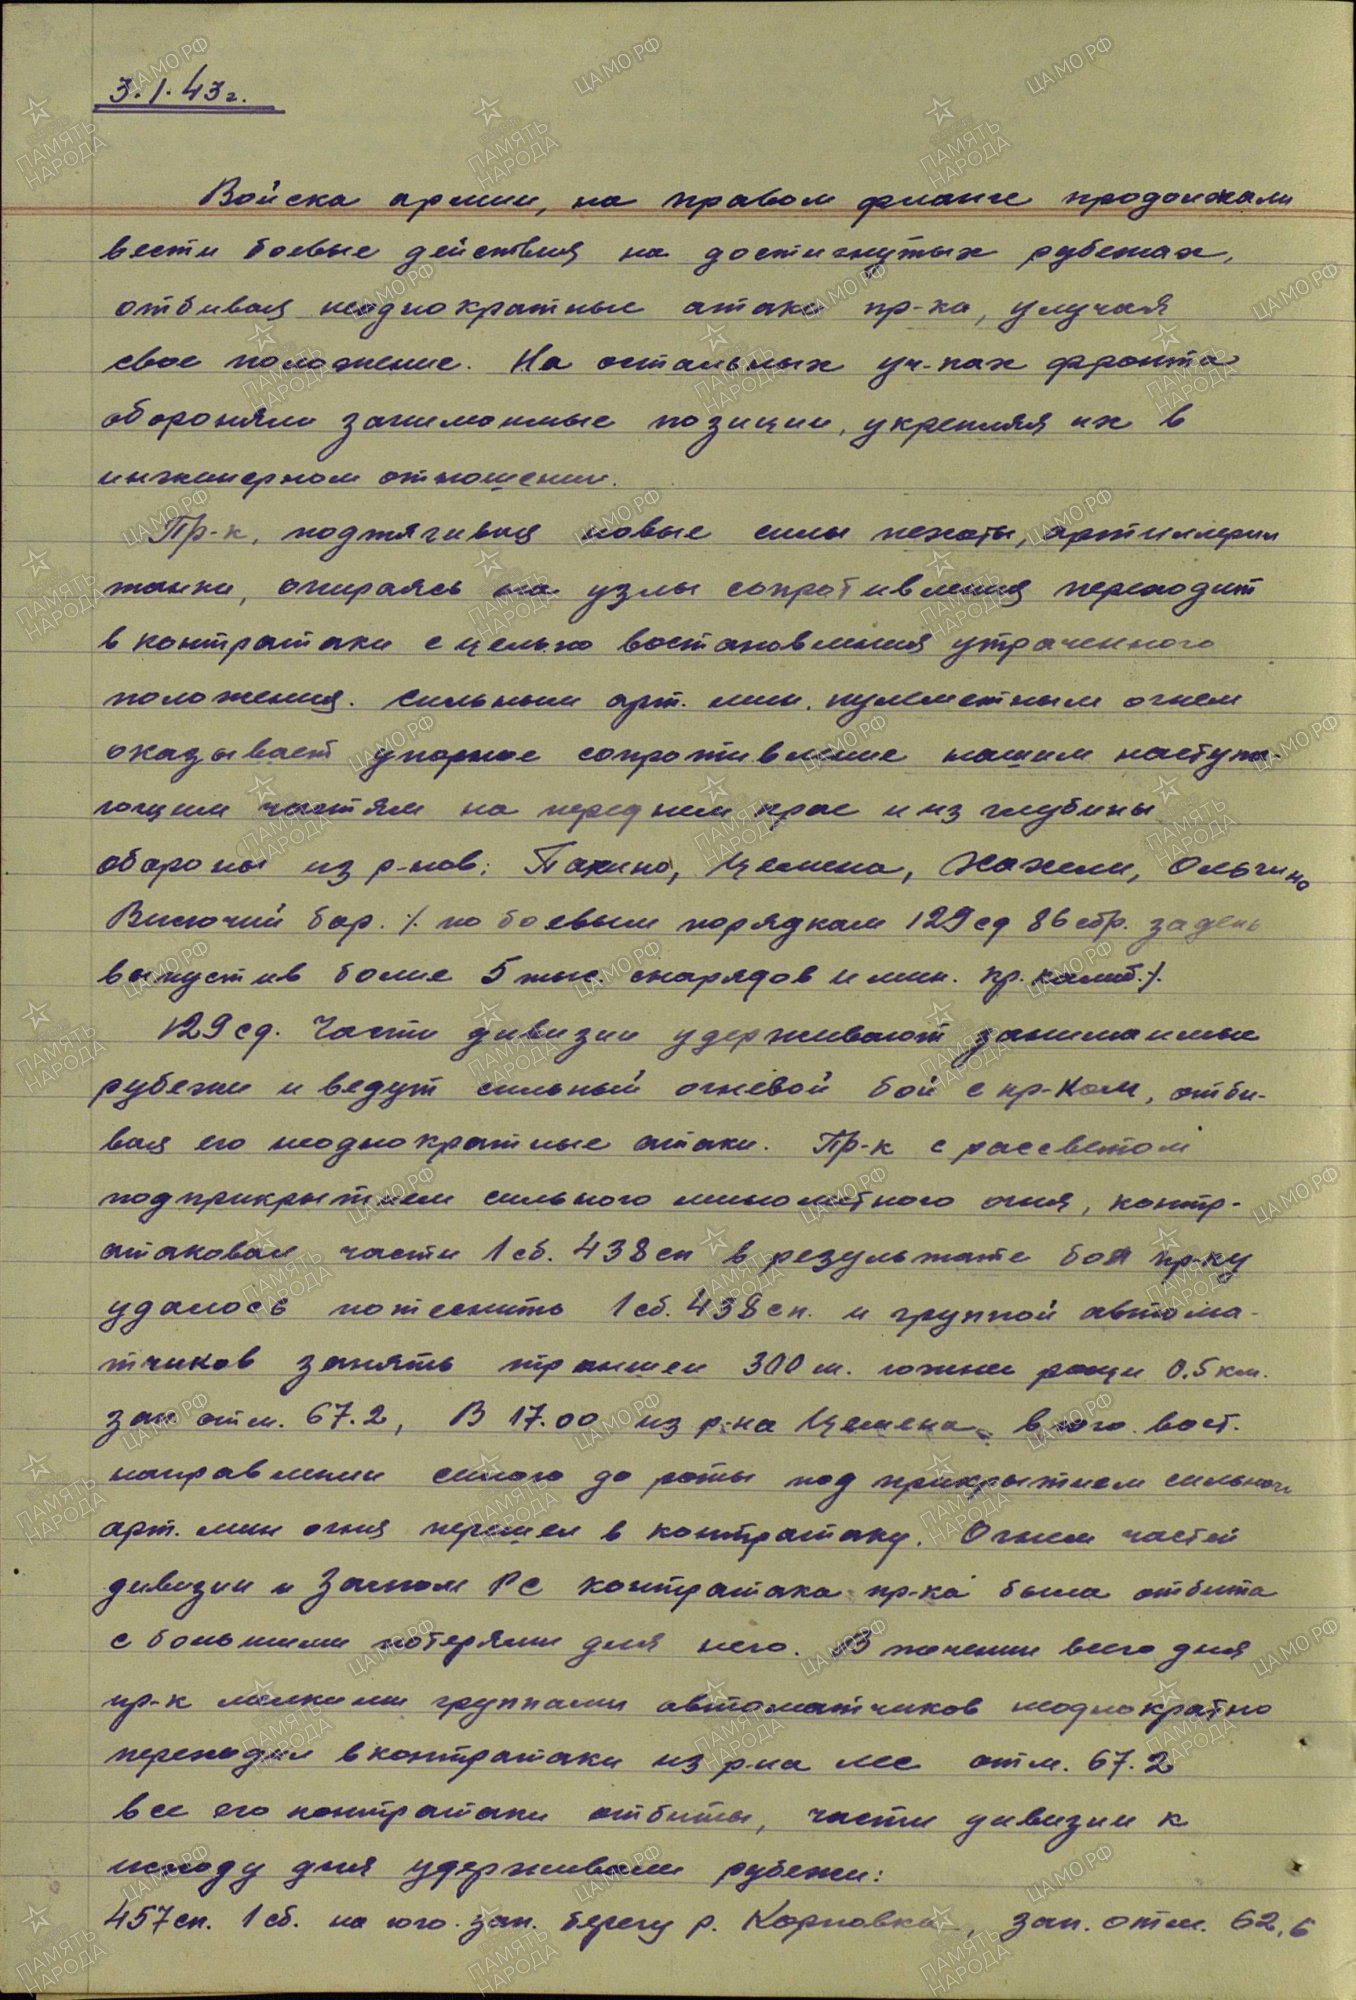 3.1.43г.
Войска армии, на правом фланге продолжали
вести боевые действия на достигнутых рубежах,
отбивая неоднократные атаки пр-ка, улучая
свое положение. На остальных уч-ках фронта
обороняли занимаемые позиции, укрепляя их в
инженерном отношении.
Пр-к, подтягивая новые силы пехоты, артиллерии
танки, опираясь на узлы сопротивления переходит
в контратаки с целью востановления утраченного
положения. Сильным арт. мин. пулеметным огнем
оказывает упорное сопротивление нашим наступа-
ющим частям на переднем крае и из глубины
обороны из р-нов: Пахино, Цемена, Хахели, Ольгино
Висючий бор. /. по боевым порядкам 129 сд 86 сбр. за день
выпустив более 5 тыс. снарядов и мин. кр. калиб./.
129 сд. Части дивизии удерживают занимаемые
рубежи и ведут сильный огневой бой с пр-ком, отби-
вая его неоднократные атаки. Пр-к с рассветом
под прикрытием сильного минометного огня, контр-
атаковал части 1 сб. 438 сп в результате боя пр-ку
удалось потеснить 1 сб. 438 сп. и группой автома-
тчиков занять траншеи 300 м. южнее рощи 0.5 км.
зап отм. 67.2, В 17.00 из р-на Цемена в юго. вост.
направлении силою до роты под прикрытием сильного
арт. мин огня перешел в контратаку. Огнем частей
дивизии и Залпом РС контратака пр-ка была отбита
с большими потерями для него. В течении всего дня
пр-к мелкими группами автоматчиков неоднократно
переходил в контратаки из р-на лес отм. 67.2
все его контратаки отбиты, части дивизии к
исходу дня удерживали рубежи:
457 сп. 1 сб. на юго. зап. берегу р. Карповка, зап. отм. 62,6